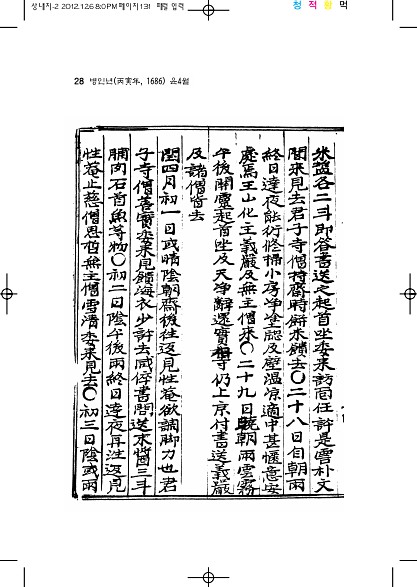 상내지-2 2012.12.6 8:0 PM 페이지131 패럴 입력
청 적 황 먹
28 병인년(丙寅年, 1686) 윤4월
米盐各二斗即答書送之起首坐委來訪雪任許是雲朴文
間來見去君子寺僧持齋時餅來饋去〇二十八日自朝雨
終日達夜能衍修掃小房淨塗認及壁溫凉適中甚愜意安
處焉王山化主義嚴及無主僧來〇二十九日晩朝雨雲霧
午後開霽起首坐及天淨辭還實相寺仍上京付書送義嚴
及諸僧皆去
閏四月初一日或晴陰朝齋後往返見性菴欲調脚力也君
子寺僧善實委來見饋海衣少許去戒倅書問送木醬三斗
脯肉石首魚等物〇初二日陰午後雨終日達夜再往返見
性菴止慈僧思哲無主僧雪清委來見去〇初三日陰或雨